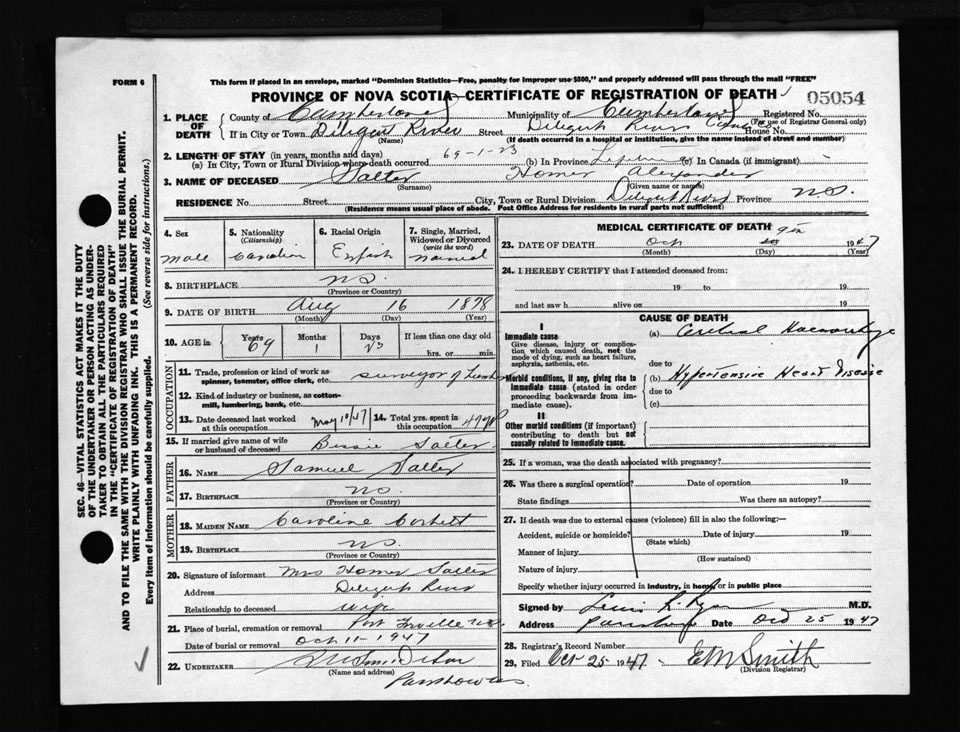 FORM 6
This form if placed in an envelope, marked "Dominion Statistics—Free, penalty for improper use $300," and properly addressed will pass through the mail "FREE"
PROVINCE OF NOVA SCOTIA—CERTIFICATE OF REGISTRATION OF DEATH 05054
1. PLACE OF DEATH
County of Cumberland Municipality of Cumberland Registered No.
(For use of Registrar General only)
If in City or Town Diligent River Street Diligent River House No.
(Name) (If death occurred in a hospital or institution, give the name instead of street and number)
2. LENGTH OF STAY (in years, months and days)
(a) In City, Town or Rural Division where death occurred 69-1-23 (b) In Province Lifetime (c) In Canada (if immigrant)
3. NAME OF DECEASED Salter Homer Alexander
(Surname) (Given name or names)
RESIDENCE No. Street City, Town or Rural Division Diligent River Province N.S.
(Residence means usual place of abode. Post Office Address for residents in rural parts not sufficient)
4. Sex
Male
5. Nationality
(Citizenship)
Canadian
6. Racial Origin
English
7. Single, Married, Widowed or Divorced
(write the word)
Married
8. BIRTHPLACE N.S.
(Province or Country)
9. DATE OF BIRTH Aug 16 1878
(Month) (Day) (Year)
10. AGE in Years 69 Months 1 Days 23 If less than one day old
hrs. or min.
OCCUPATION
11. Trade, profession or kind of work as spinner, teamster, office clerk, etc. surveyor of Lumber
12. Kind of industry or business, as cotton-mill, lumbering, bank, etc.
13. Date deceased last worked at this occupation May 10/47
14. Total yrs. spent in this occupation
15. If married give name of wife or husband of deceased Bessie Salter
FATHER
16. NAME Samuel Salter
17. BIRTHPLACE N.S.
(Province or Country)
MOTHER
18. MAIDEN NAME Caroline Corbett
19. BIRTHPLACE N.S.
(Province or Country)
20. Signature of informant Mrs Homer Salter
Address Diligent River
Relationship to deceased wife
21. Place of burial, cremation or removal Port Greville N.S.
Date of burial or removal Oct 11-1947
22. UNDERTAKER
(Name and address)
Parrsboro N.S.
MEDICAL CERTIFICATE OF DEATH
23. DATE OF DEATH Oct 9th 1947
(Month) (Day) (Year)
24. I HEREBY CERTIFY that I attended deceased from:
19 to 19
and last saw h alive on 19
CAUSE OF DEATH
I
Immediate cause
Give disease, injury or complication which caused death, not the mode of dying, such as heart failure, asphyxia, asthenia, etc.
(a) Cerebral Haemorrhage
due to
Morbid conditions, if any, giving rise to immediate cause (stated in order proceeding backwards from immediate cause).
(b) Hypertensive Heart Disease
due to
(c)
II
Other morbid conditions (if important) contributing to death but not causally related to immediate cause.
25. If a woman, was the death associated with pregnancy?
26. Was there a surgical operation? Date of operation 19
State findings Was there an autopsy?
27. If death was due to external causes (violence) fill in also the following:—
Accident, suicide or homicide? Date of injury 19
(State which)
Manner of injury
(How sustained)
Nature of injury
Specify whether injury occurred in industry, in home or in public place
Signed by M.D.
Address Parrsboro Date Oct 25 1947
28. Registrar's Record Number
29. Filed Oct 25 1947 E M Smith
(Division Registrar)
SEC. 46—VITAL STATISTICS ACT MAKES IT THE DUTY OF THE UNDERTAKER OR PERSON ACTING AS UNDERTAKER TO OBTAIN ALL THE PARTICULARS REQUIRED IN THE "CERTIFICATE OF REGISTRATION OF DEATH" AND TO FILE THE SAME WITH THE DIVISION REGISTRAR WHO SHALL ISSUE THE BURIAL PERMIT.
WRITE PLAINLY WITH UNFADING INK. THIS IS A PERMANENT RECORD.
Every item of information should be carefully supplied. (See reverse side for instructions.)